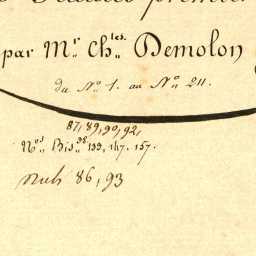 par Mr. Chles. Demolon
du No. 1. au No. 211.
87, 89, 90, 92,
Nos. Bis 98 133, 147. 157.
86, 93